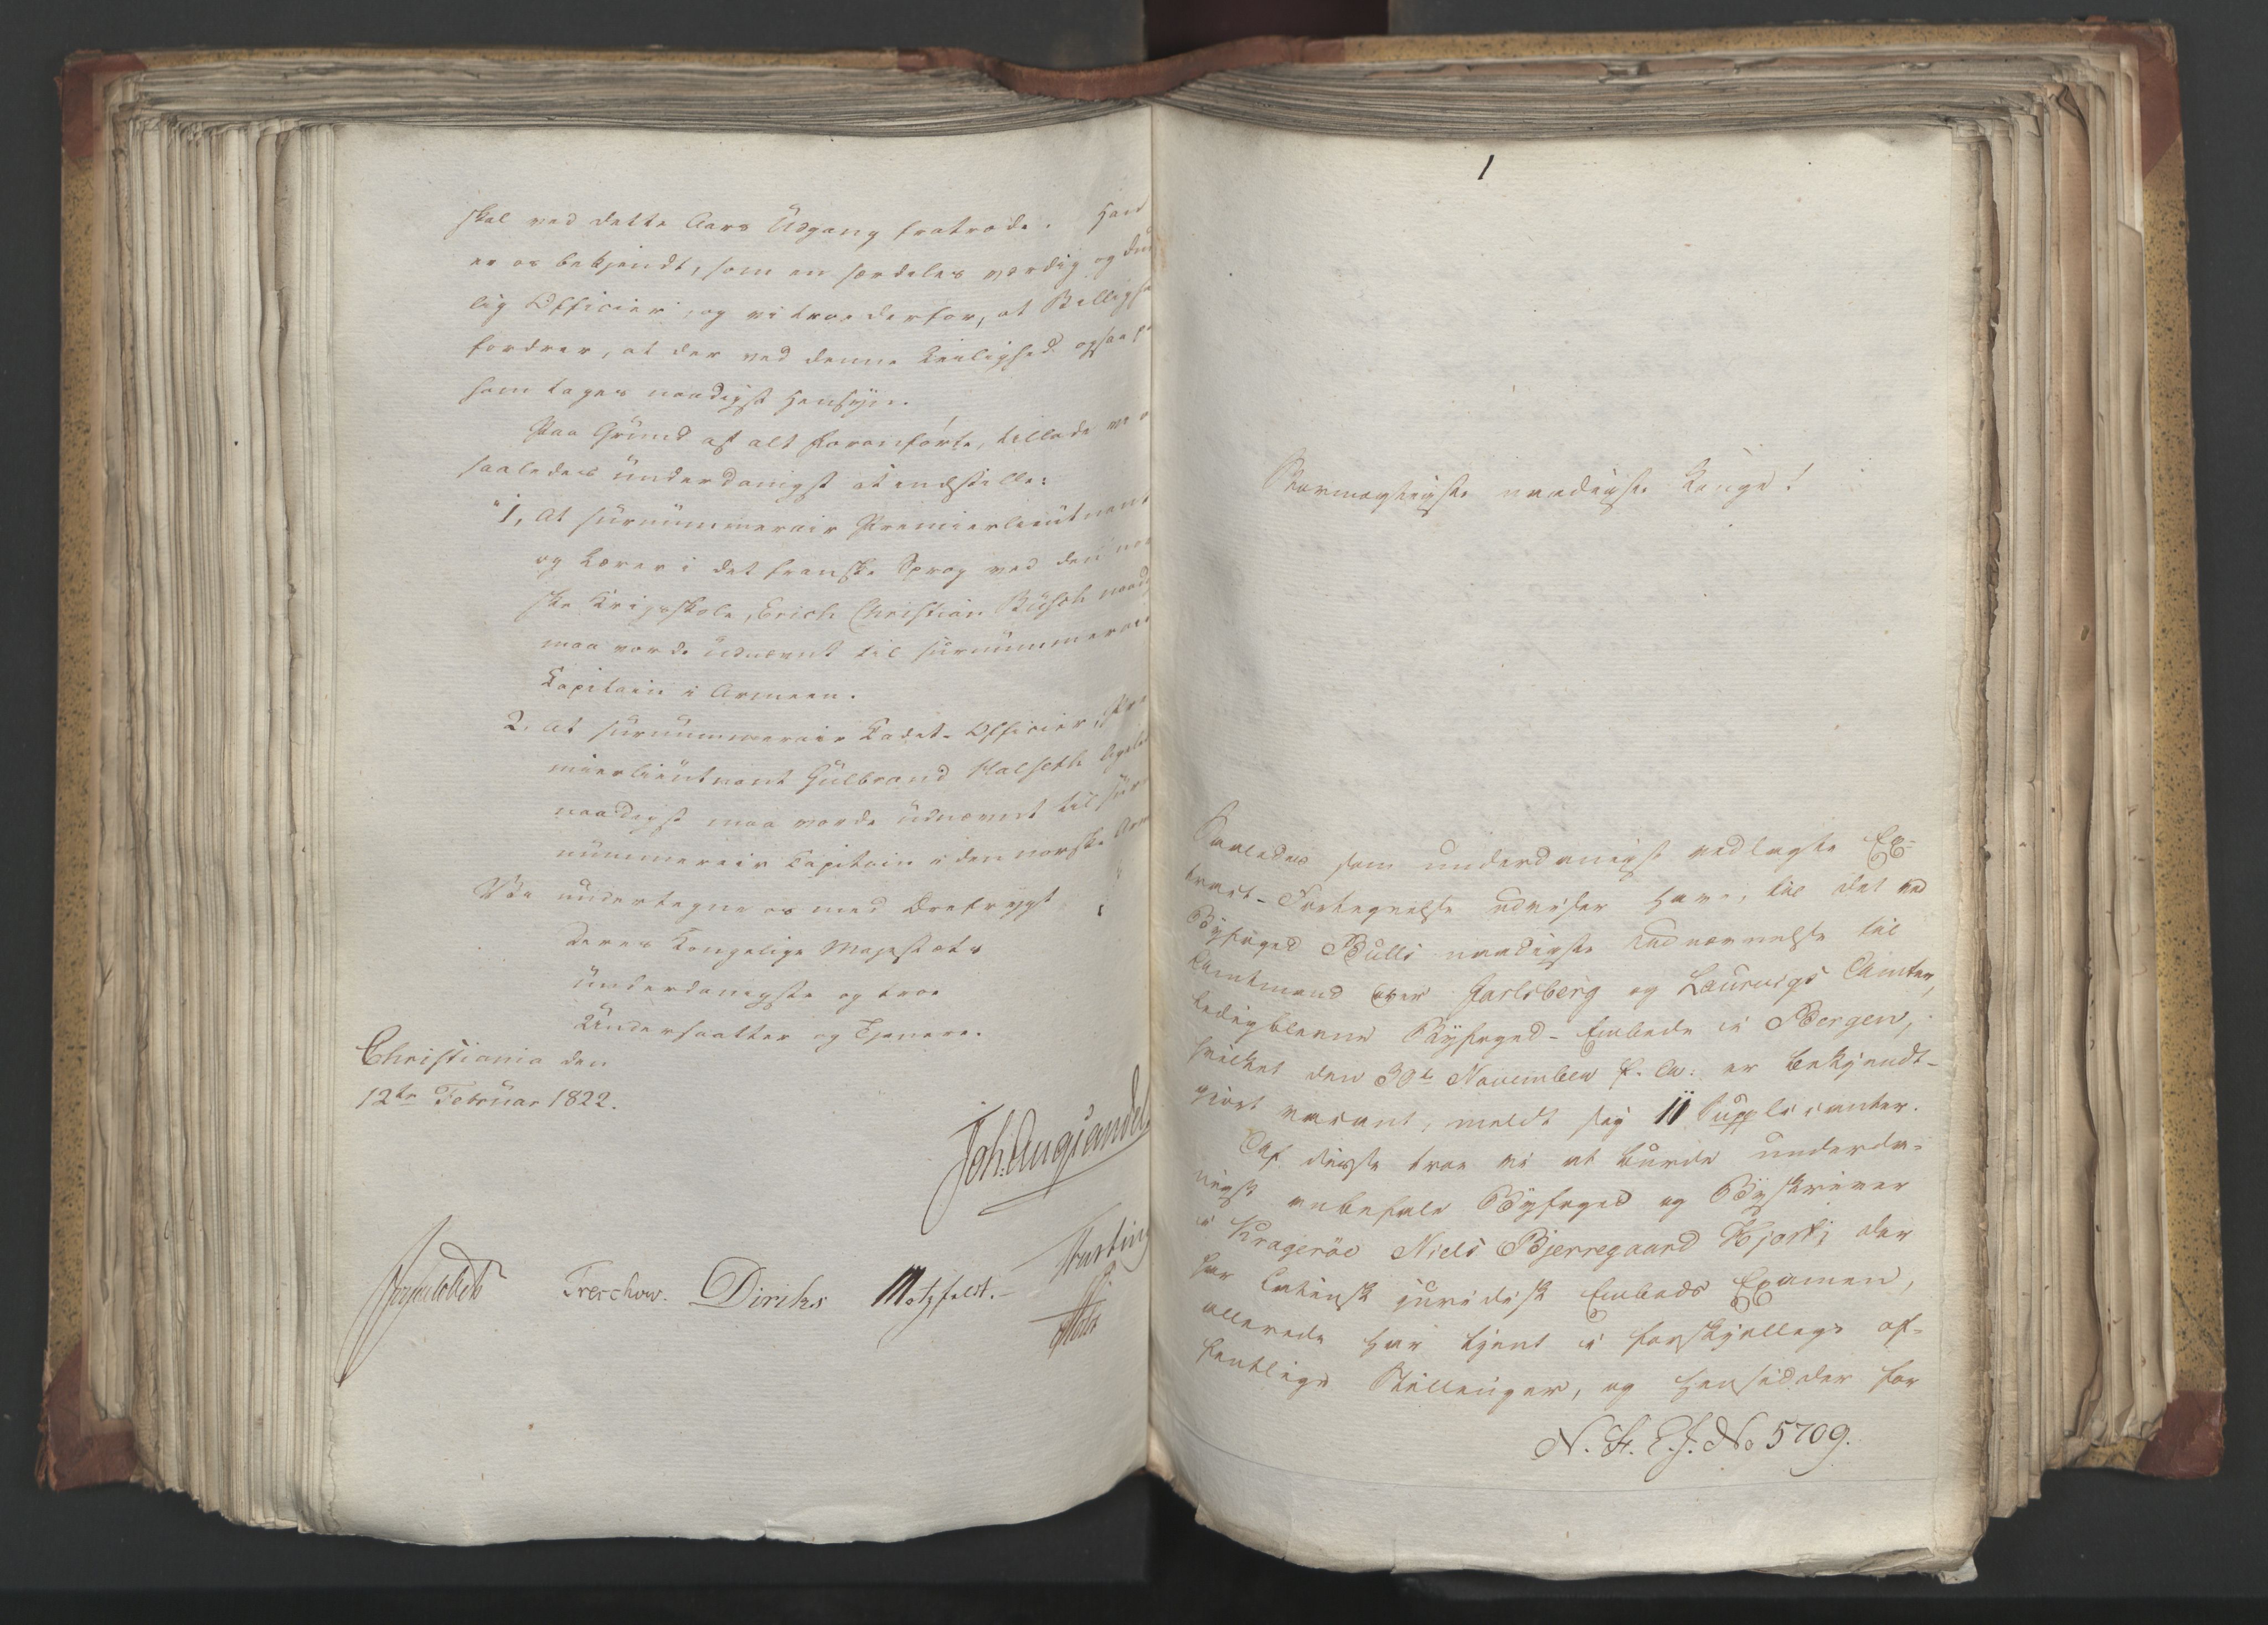 skal ved dette Aars Udgang fratræde. Han
er os bekjendt, som en særdeles værdig og du
lig Officier, og vi troe derfor, at Billighe
fordrer, at der ved denne Leilighed ogsaa
ham tages naadigst Hensyn.
Paa Grund af alt Foranførte, tillade vi o
saaledes underdanigst at indstille:
"1, At surnummerair Premierlieutnant
og Lærer i det franske Sprog ved den no
ske Krigsskole, Erich Christian Büsch naad
maa vorde udnævnt til surnummerair
Kapitain i Armeen.
2. At surnummerair Kadet-Officier, Pre
mierlieutnant Gulbrand Halseth ligele
naadigst maa vorde udnævnt til sur
nummerair Kapitain i den norske Arm
Vie undertegne os med Ærefrygt
Deres Kongelige Majestæts
underdanigste og troe
Undersaatter og Tjenere.
Christiania den
12te Februar 1822.
Joh. Aug: Sandels
Treschow. Diriks Motzfeldt.
Fasting
Holst
1
Stormægtigste naadigste Konge!
Saaledes som underdanigst vedlagte Ex-
tract-Fortegnelse udviser have, til det ved
Byfoged Bulls naadigste Udnævnelse til
Amtmand over Jarlsberg og Laurvigs Amter,
ledigblevne Byfoged-Embede i Bergen,
hvilket den 30te November f. A. er bekjendt-
gjort vacant, meldt sig 11 Supplicanter.
Af disse troe vi at burde underda-
nigst anbefale Byfoged og Byskriver
i Kragerøe Niels Bjerregaard Hjort, der
har Latinsk juridisk Embeds Examen,
allerede har tjent i forskjellige of-
fentlige Stillinger, og hensidder for
N. H. E. J. No 5709.